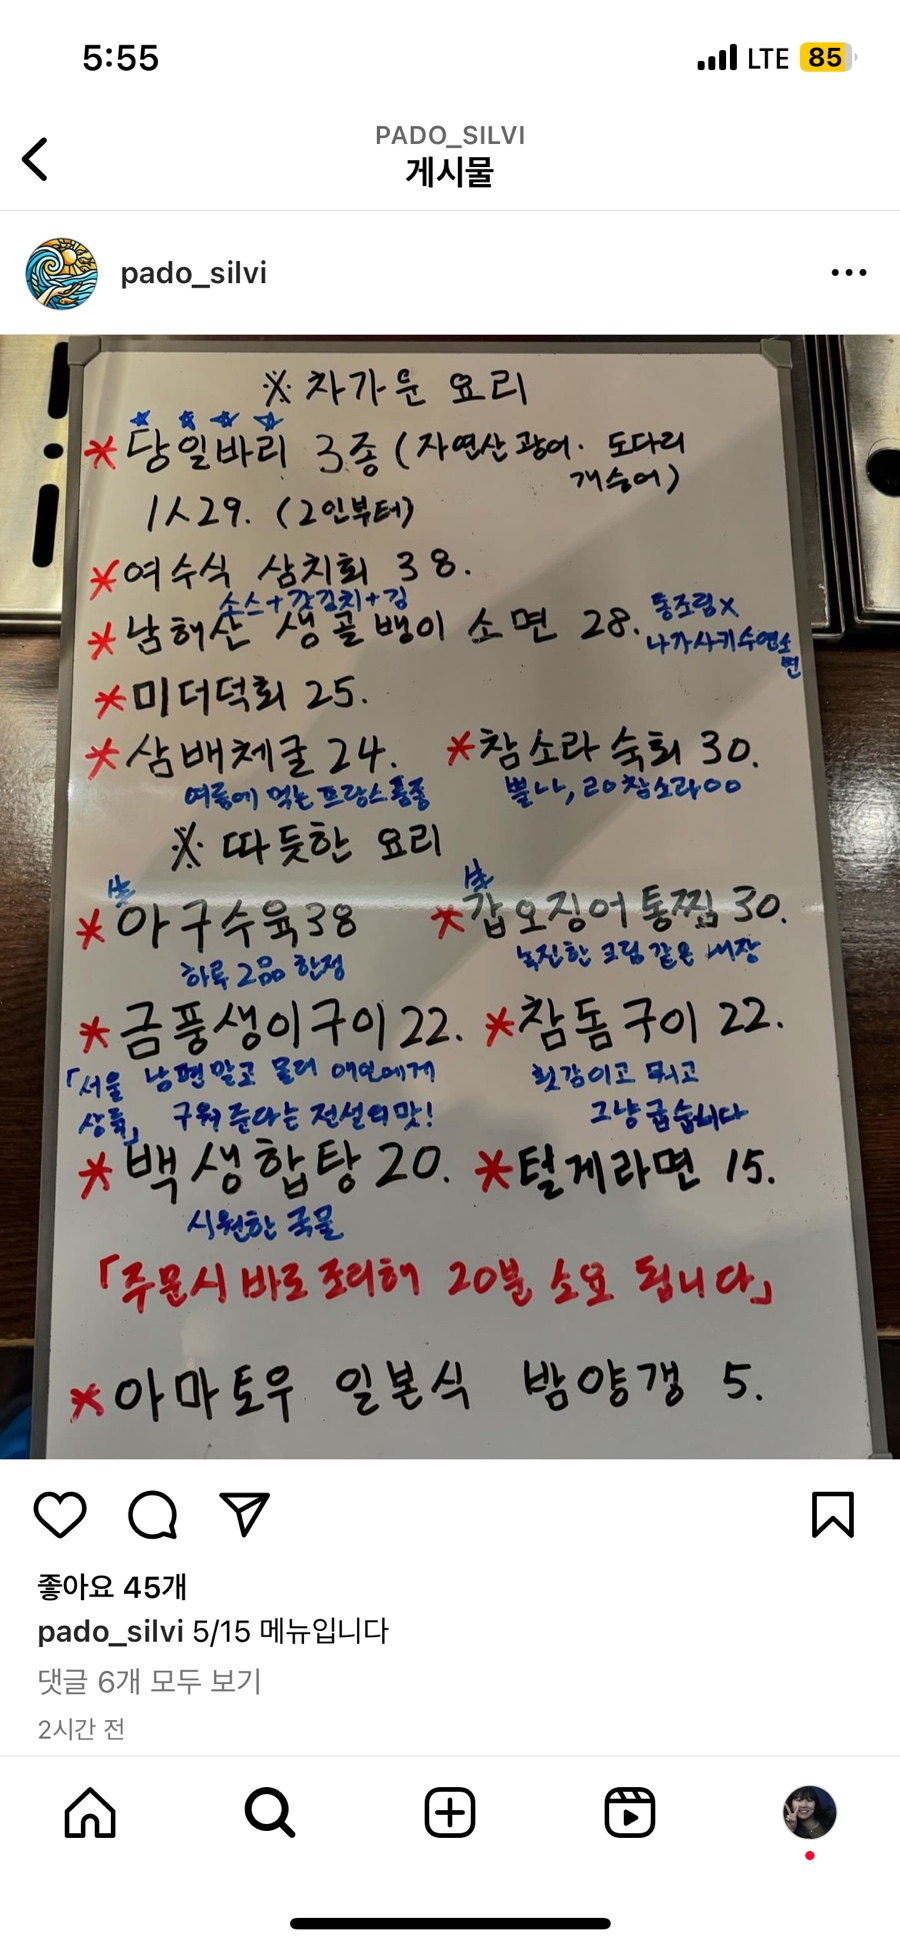 5:55
LTE 85
PADO_SILVI
게시물
pado_silvi
※ 차가운 요리
* 당일바리 3종 (자연산 광어. 도다리
개숭어)
1人29. (2인부터)
* 여수식 삼치회 38.
소스+갓김치+김
* 남해산 생골뱅이 소면 28.
통조림X
나가사키수연소
면
* 미더덕회 25.
* 삼배체굴 24. * 참소라 숙회 30.
여름에 먹는 프랑스품종
뿔ㄴㄴ, ㄹㅇ참소라ㅇㅇ
※ 따듯한 요리
生 生
* 아구수육 38 * 갑오징어통찜 30.
하루 2品 한정
녹진한 크림 같은 내장
* 금풍생이구이 22. * 참돔구이 22.
「서울 남편말고 몰더 애인에게
상륙」 구워준다는 전설의맛!
횟감이고 뭐고
그냥 굽습니다
* 백생합탕 20. * 털게라면 15.
시원한 국물
「주문시 바로 조리해 20분 소요 됩니다」
* 아마토우 일본식 밤양갱 5.
좋아요 45개
pado_silvi 5/15 메뉴입니다
댓글 6개 모두 보기
2시간 전